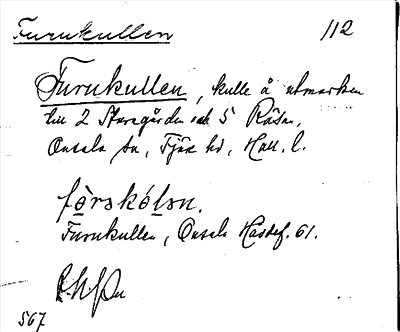 Furukullen 112
Furukullen, kulle å utmarken
till 2 Storegården och 5 Råsan,
Onsala sn, Fjäre hd, Hall. l.
fɷ̀rəkólən.
Furukullen, Onsala Hasted. 61.
567